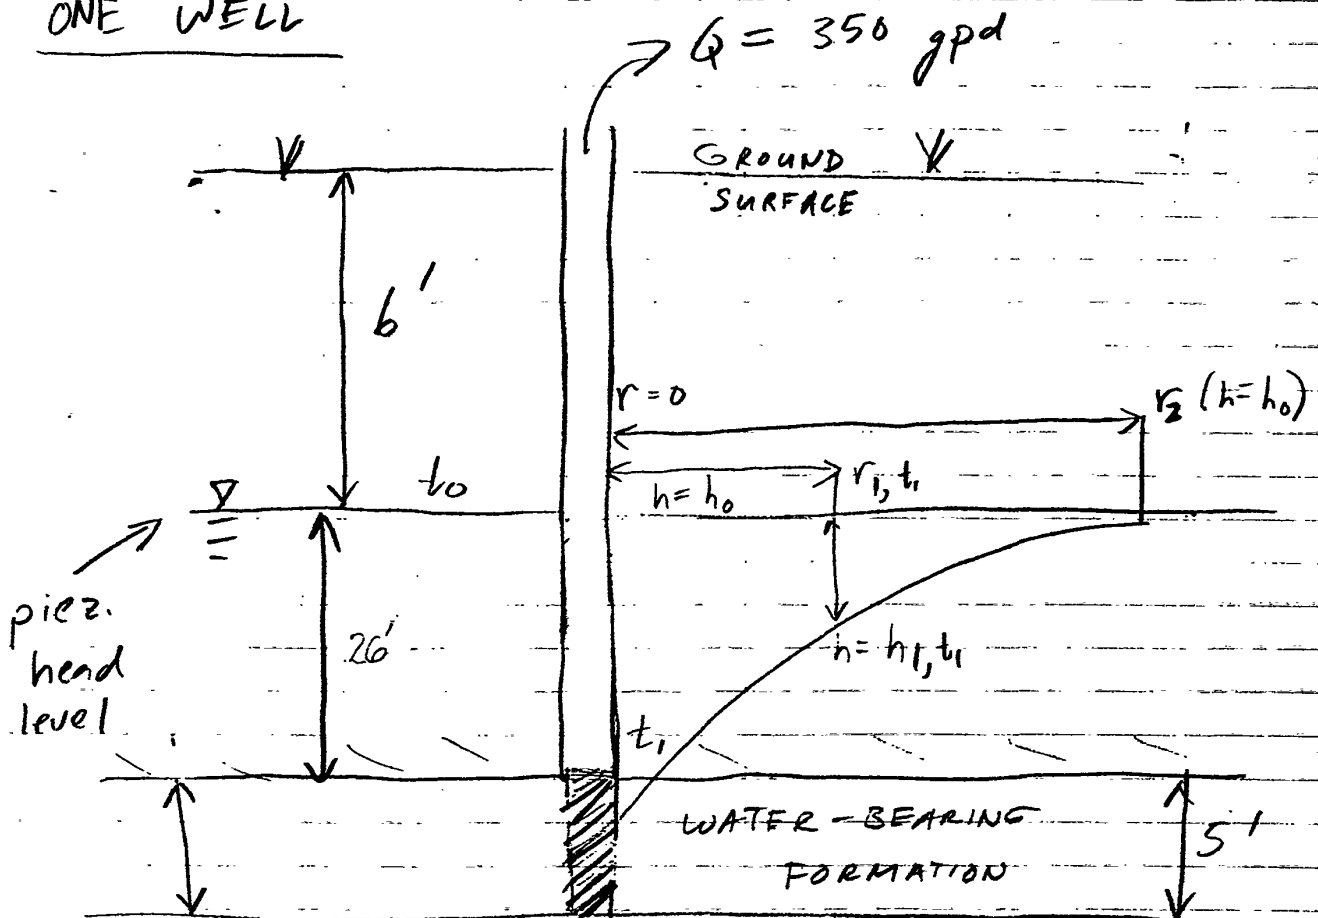 ONE WELL
Q = 350 gpd
GROUND
SURFACE
6'
r=0
r₂ (h=h₀)
t₀
h=h₀
r₁, t₁
piez.
head
level
26'
h=h₁, t₁
t₁
WATER-BEARING
FORMATION
5'